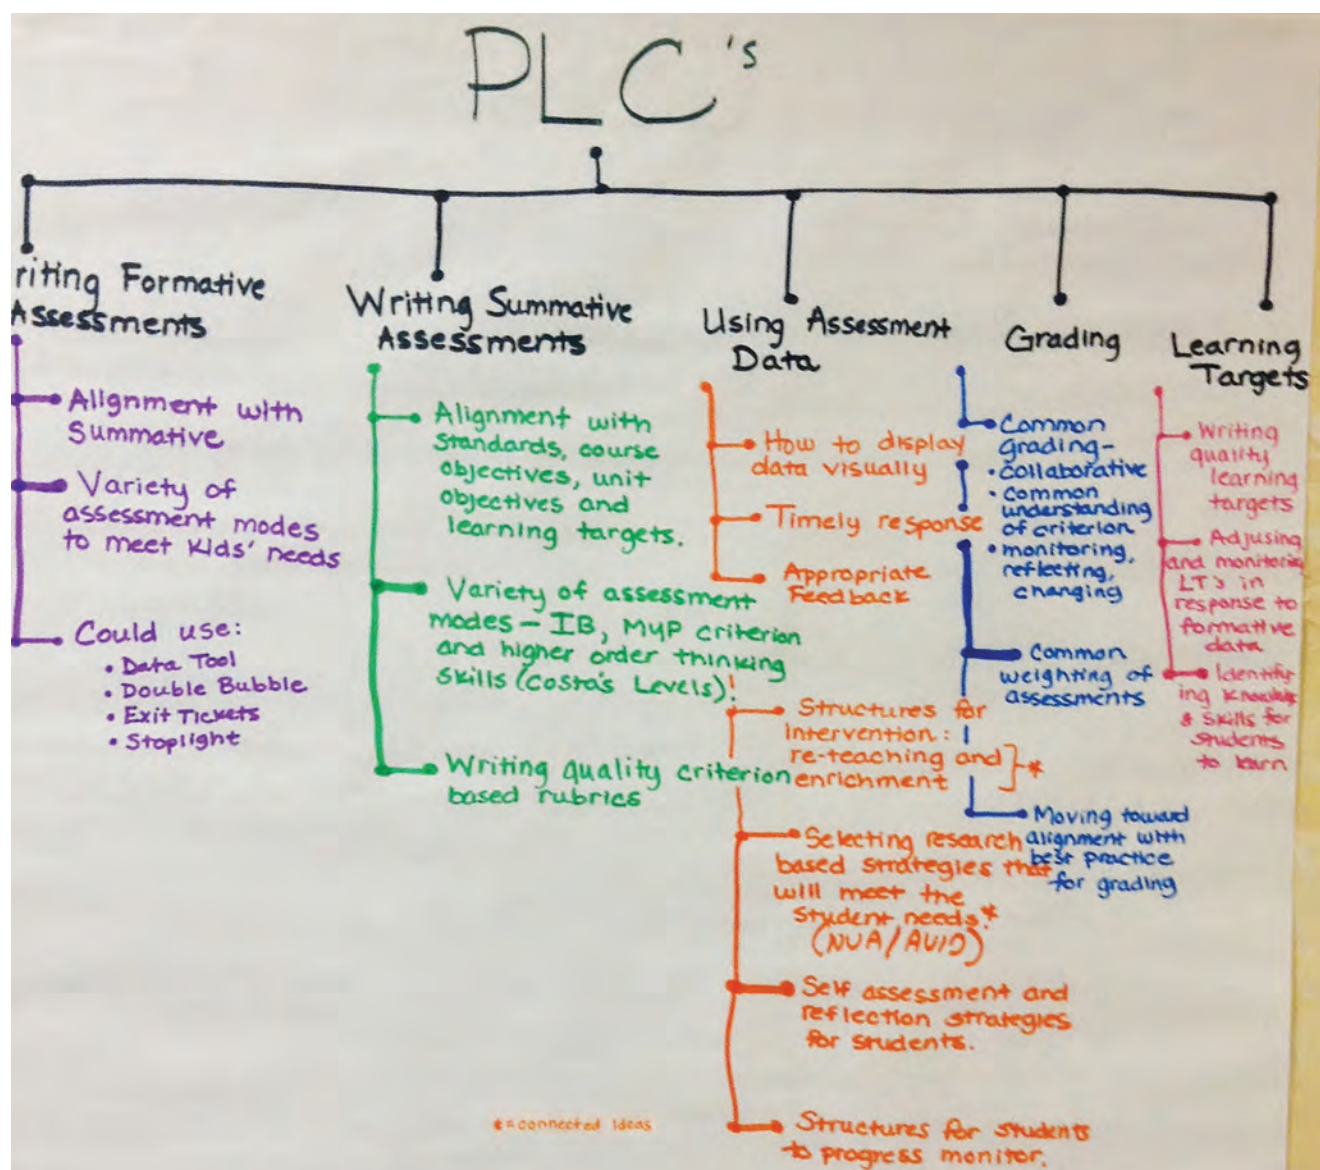 PLC's
riting Formative
Assessments
Alignment with
Summative
Variety of
assessment modes
to meet kids' needs
Could use:
• Data Tool
• Double Bubble
• Exit Tickets
• Stoplight
Writing Summative
Assessments
Alignment with
standards, course
objectives, unit
objectives and
learning targets.
Variety of assessment
modes – IB, MYP criterion
and higher order thinking
skills (Costa's Levels)!
Writing quality criterion
based rubrics
Using Assessment
Data
How to display
data visually
Timely response
Appropriate
Feedback
Structures for
Intervention:
re-teaching and
enrichment
*
Selecting research
based strategies that
will meet the
student needs.*
(NUA/AVID)
Self assessment and
reflection strategies
for students.
Structures for students
to progress monitor.
*=connected ideas
Grading
Common
grading–
• collaborative
• common
understanding
of criterion
• monitoring,
reflecting,
changing
Common
weighting of
assessments
Moving toward
alignment with
best practice
for grading
Learning
Targets
Writing
quality
learning
targets
Adjusing
and monitoring
LT's in
response to
formative
data
Identify
ing knowledge
& skills for
students
to learn